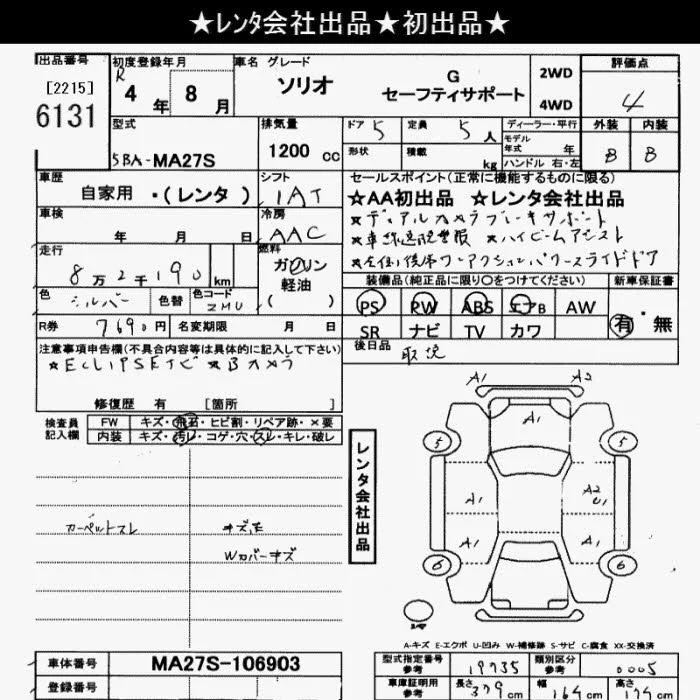 ★レンタ会社出品★初出品★
出品番号 初度登録年月 車名 グレード 評価点
[2215]
6131
R 4 年 8 月
ソリオ
G
セーフティサポート
2WD
4WD
4
外装 内装
B B
型式 排気量 ドア 5 定員 5 人 ディーラー・平行
5BA-MA27S
1200 cc
形状 積載 kg
モデル年式 年
ハンドル 右・左
車歴
自家用 ・(レンタ)
シフト
IAT
セールスポイント(正常に機能するものに限る)
★AA初出品 ★レンタ会社出品
★デュアルカメラブレーキサポート
★車線逸脱警報 ★ハイビームアシスト
★左側後席ワンアクションパワースライドドア
車検
年 月 日
冷房
AAC
走行
8万2千190 km
燃料
ガソリン
軽油
( )
色
シルバー
色替
色コード
ZMU
装備品(純正品に限り○をつけてください)
新車保証書
PS PW ABS エアB AW
SR ナビ TV カワ
有・無
R券 7690円 名変期限 月 日
後日品 取説
注意事項申告欄(不具合内容等は具体的に記入して下さい)
★ECLIPSEナビ ★Bカメラ
修復歴 有 [箇所
検査員記入欄
FW キズ・飛石・ヒビ割・リペア跡・×要
内装 キズ・汚レ・コゲ・穴・スレ・キレ・破レ
レンタ会社出品
カーペットスレ
Wカバーキズ
A1 A2
A1
5 5
A1 A2
U1
A1 A1
6 6
A-キズ E-エクボ U-凹み W-補修跡 S-サビ C-腐食 XX-交換済
車体番号 MA27S-106903
型式指定番号 参考 19735
類別区分 参考 0005
登録番号
車庫証明用 参考
長さ 379 cm
幅 164 cm
高さ 174 cm